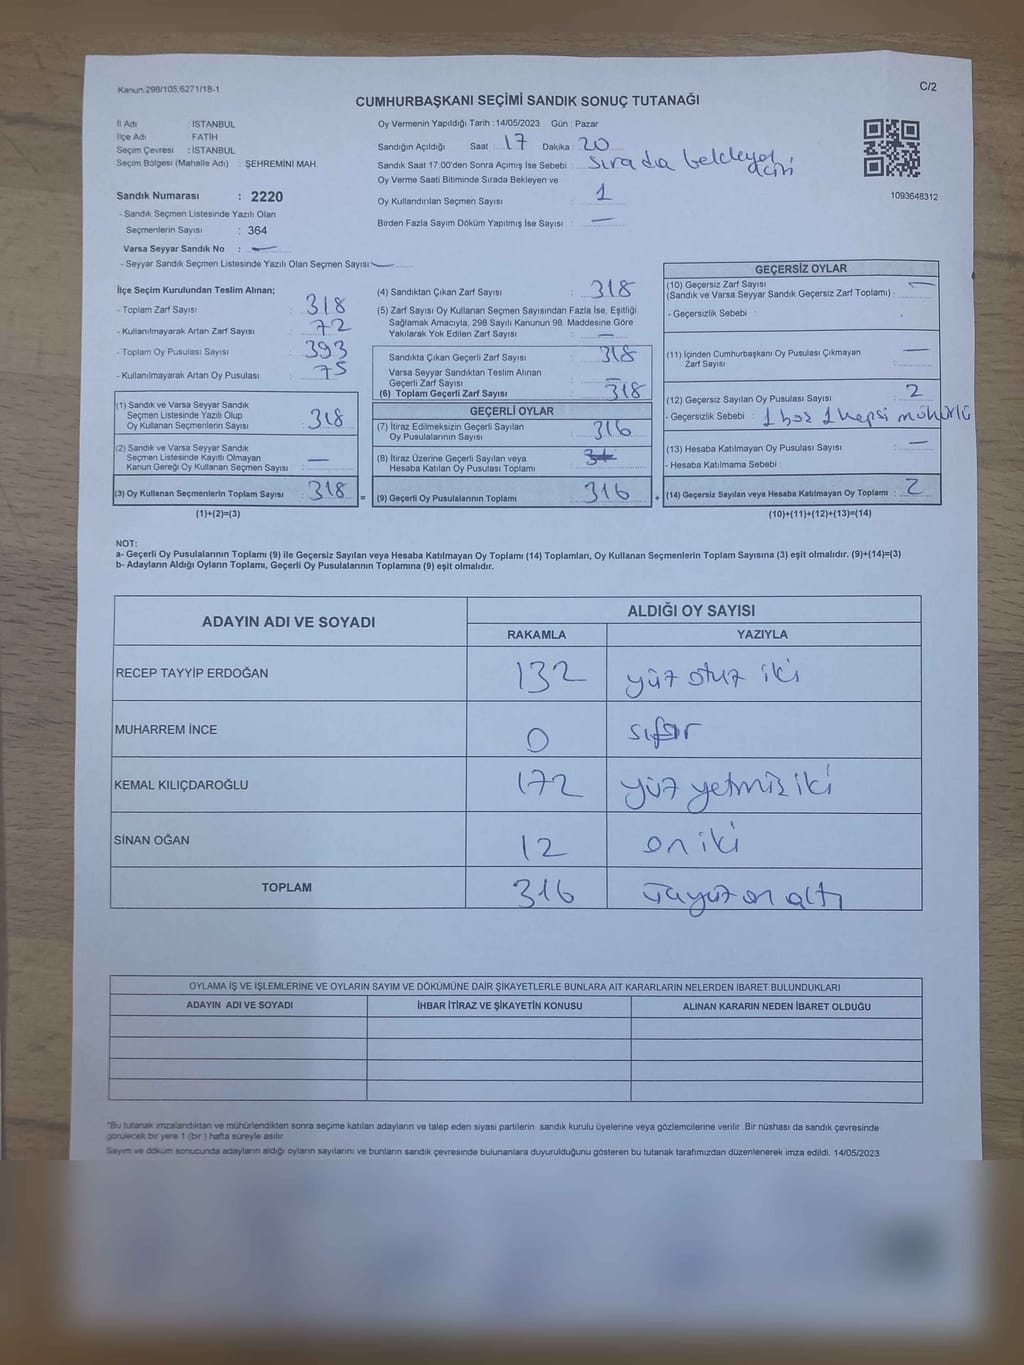 Kanun.298/105,6271/18-1
C/2
CUMHURBAŞKANI SEÇİMİ SANDIK SONUÇ TUTANAĞI
İl Adı : İSTANBUL
İlçe Adı : FATİH
Seçim Çevresi : İSTANBUL
Seçim Bölgesi (Mahalle Adı) : ŞEHREMİNİ MAH.
Oy Vermenin Yapıldığı Tarih : 14/05/2023 Gün : Pazar
Sandığın Açıldığı Saat : 17 Dakika : 20
Sandık Saat 17:00'den Sonra Açımış İse Sebebi : sırada bekleyen
Oy Verme Saati Bitiminde Sırada Bekleyen ve
Oy Kullandırılan Seçmen Sayısı : 1
Birden Fazla Sayım Döküm Yapılmış İse Sayısı : —
1093648312
Sandık Numarası : 2220
- Sandık Seçmen Listesinde Yazılı Olan
Seçmenlerin Sayısı : 364
Varsa Seyyar Sandık No : —
- Seyyar Sandık Seçmen Listesinde Yazılı Olan Seçmen Sayısı : —
İlçe Seçim Kurulundan Teslim Alınan;
- Toplam Zarf Sayısı : 318
- Kullanılmayarak Artan Zarf Sayısı : 72
- Toplam Oy Pusulası Sayısı : 393
- Kullanılmayarak Artan Oy Pusulası : 75
(1) Sandık ve Varsa Seyyar Sandık
Seçmen Listesinde Yazılı Olup
Oy Kullanan Seçmenlerin Sayısı : 318
(2) Sandık ve Varsa Seyyar Sandık
Seçmen Listesinde Kayıtlı Olmayan
Kanun Gereği Oy Kullanan Seçmen Sayısı : —
(3) Oy Kullanan Seçmenlerin Toplam Sayısı : 318 =
(1)+(2)=(3)
(4) Sandıktan Çıkan Zarf Sayısı : 318
(5) Zarf Sayısı Oy Kullanan Seçmen Sayısından Fazla İse, Eşitliği
Sağlamak Amacıyla, 298 Sayılı Kanunun 98. Maddesine Göre
Yakılarak Yok Edilen Zarf Sayısı : —
Sandıkta Çıkan Geçerli Zarf Sayısı : 318
Varsa Seyyar Sandıktan Teslim Alınan
Geçerli Zarf Sayısı : —
(6) Toplam Geçerli Zarf Sayısı : 318
GEÇERLİ OYLAR
(7) İtiraz Edilmeksizin Geçerli Sayılan
Oy Pusulalarının Sayısı : 316
(8) İtiraz Üzerine Geçerli Sayılan veya
Hesaba Katılan Oy Pusulası Toplamı :
(9) Geçerli Oy Pusulalarının Toplamı : 316 +
GEÇERSİZ OYLAR
(10) Geçersiz Zarf Sayısı
(Sandık ve Varsa Seyyar Sandık Geçersiz Zarf Toplamı) : —
- Geçersizlik Sebebi :
(11) İçinden Cumhurbaşkanı Oy Pusulası Çıkmayan
Zarf Sayısı : —
(12) Geçersiz Sayılan Oy Pusulası Sayısı : 2
- Geçersizlik Sebebi : 1 boş 1 hepsi mühürlü
(13) Hesaba Katılmayan Oy Sayısı : —
- Hesaba Katılmama Sebebi :
(14) Geçersiz Sayılan veya Hesaba Katılmayan Oy Toplamı : 2
(10)+(11)+(12)+(13)=(14)
NOT:
a- Geçerli Oy Pusulalarının Toplamı (9) ile Geçersiz Sayılan veya Hesaba Katılmayan Oy Toplamı (14) Toplamları, Oy Kullanan Seçmenlerin Toplam Sayısına (3) eşit olmalıdır. (9)+(14)=(3)
b- Adayların Aldığı Oyların Toplamı, Geçerli Oy Pusulalarının Toplamına (9) eşit olmalıdır.
ADAYIN ADI VE SOYADI ALDIĞI OY SAYISI
RAKAMLA YAZIYLA
RECEP TAYYİP ERDOĞAN 132 yüz otuz iki
MUHARREM İNCE 0 sıfır
KEMAL KILIÇDAROĞLU 172 yüz yetmiş iki
SİNAN OĞAN 12 on iki
TOPLAM 316 üçyüz on altı
OYLAMA İŞ VE İŞLEMLERİNE VE OYLARIN SAYIM VE DÖKÜMÜNE DAİR ŞİKAYETLERLE BUNLARA AİT KARARLARIN NELERDEN İBARET BULUNDUKLARI
ADAYIN ADI VE SOYADI İHBAR İTİRAZ VE ŞİKAYETİN KONUSU ALINAN KARARIN NEDEN İBARET OLDUĞU
*Bu tutanak imzalandıktan ve mühürlendikten sonra seçime katılan adayların ve talep eden siyasi partilerin sandık kurulu üyelerine veya gözlemcilerine verilir. Bir nüshası da sandık çevresinde
görülecek bir yere 1 (bir ) hafta süreyle asılır.
Sayım ve döküm sonucunda adayların aldığı oyların sayılarını ve bunların sandık çevresinde bulunanlara duyurulduğunu gösteren bu tutanak tarafımızdan düzenlenerek imza edildi. 14/05/2023